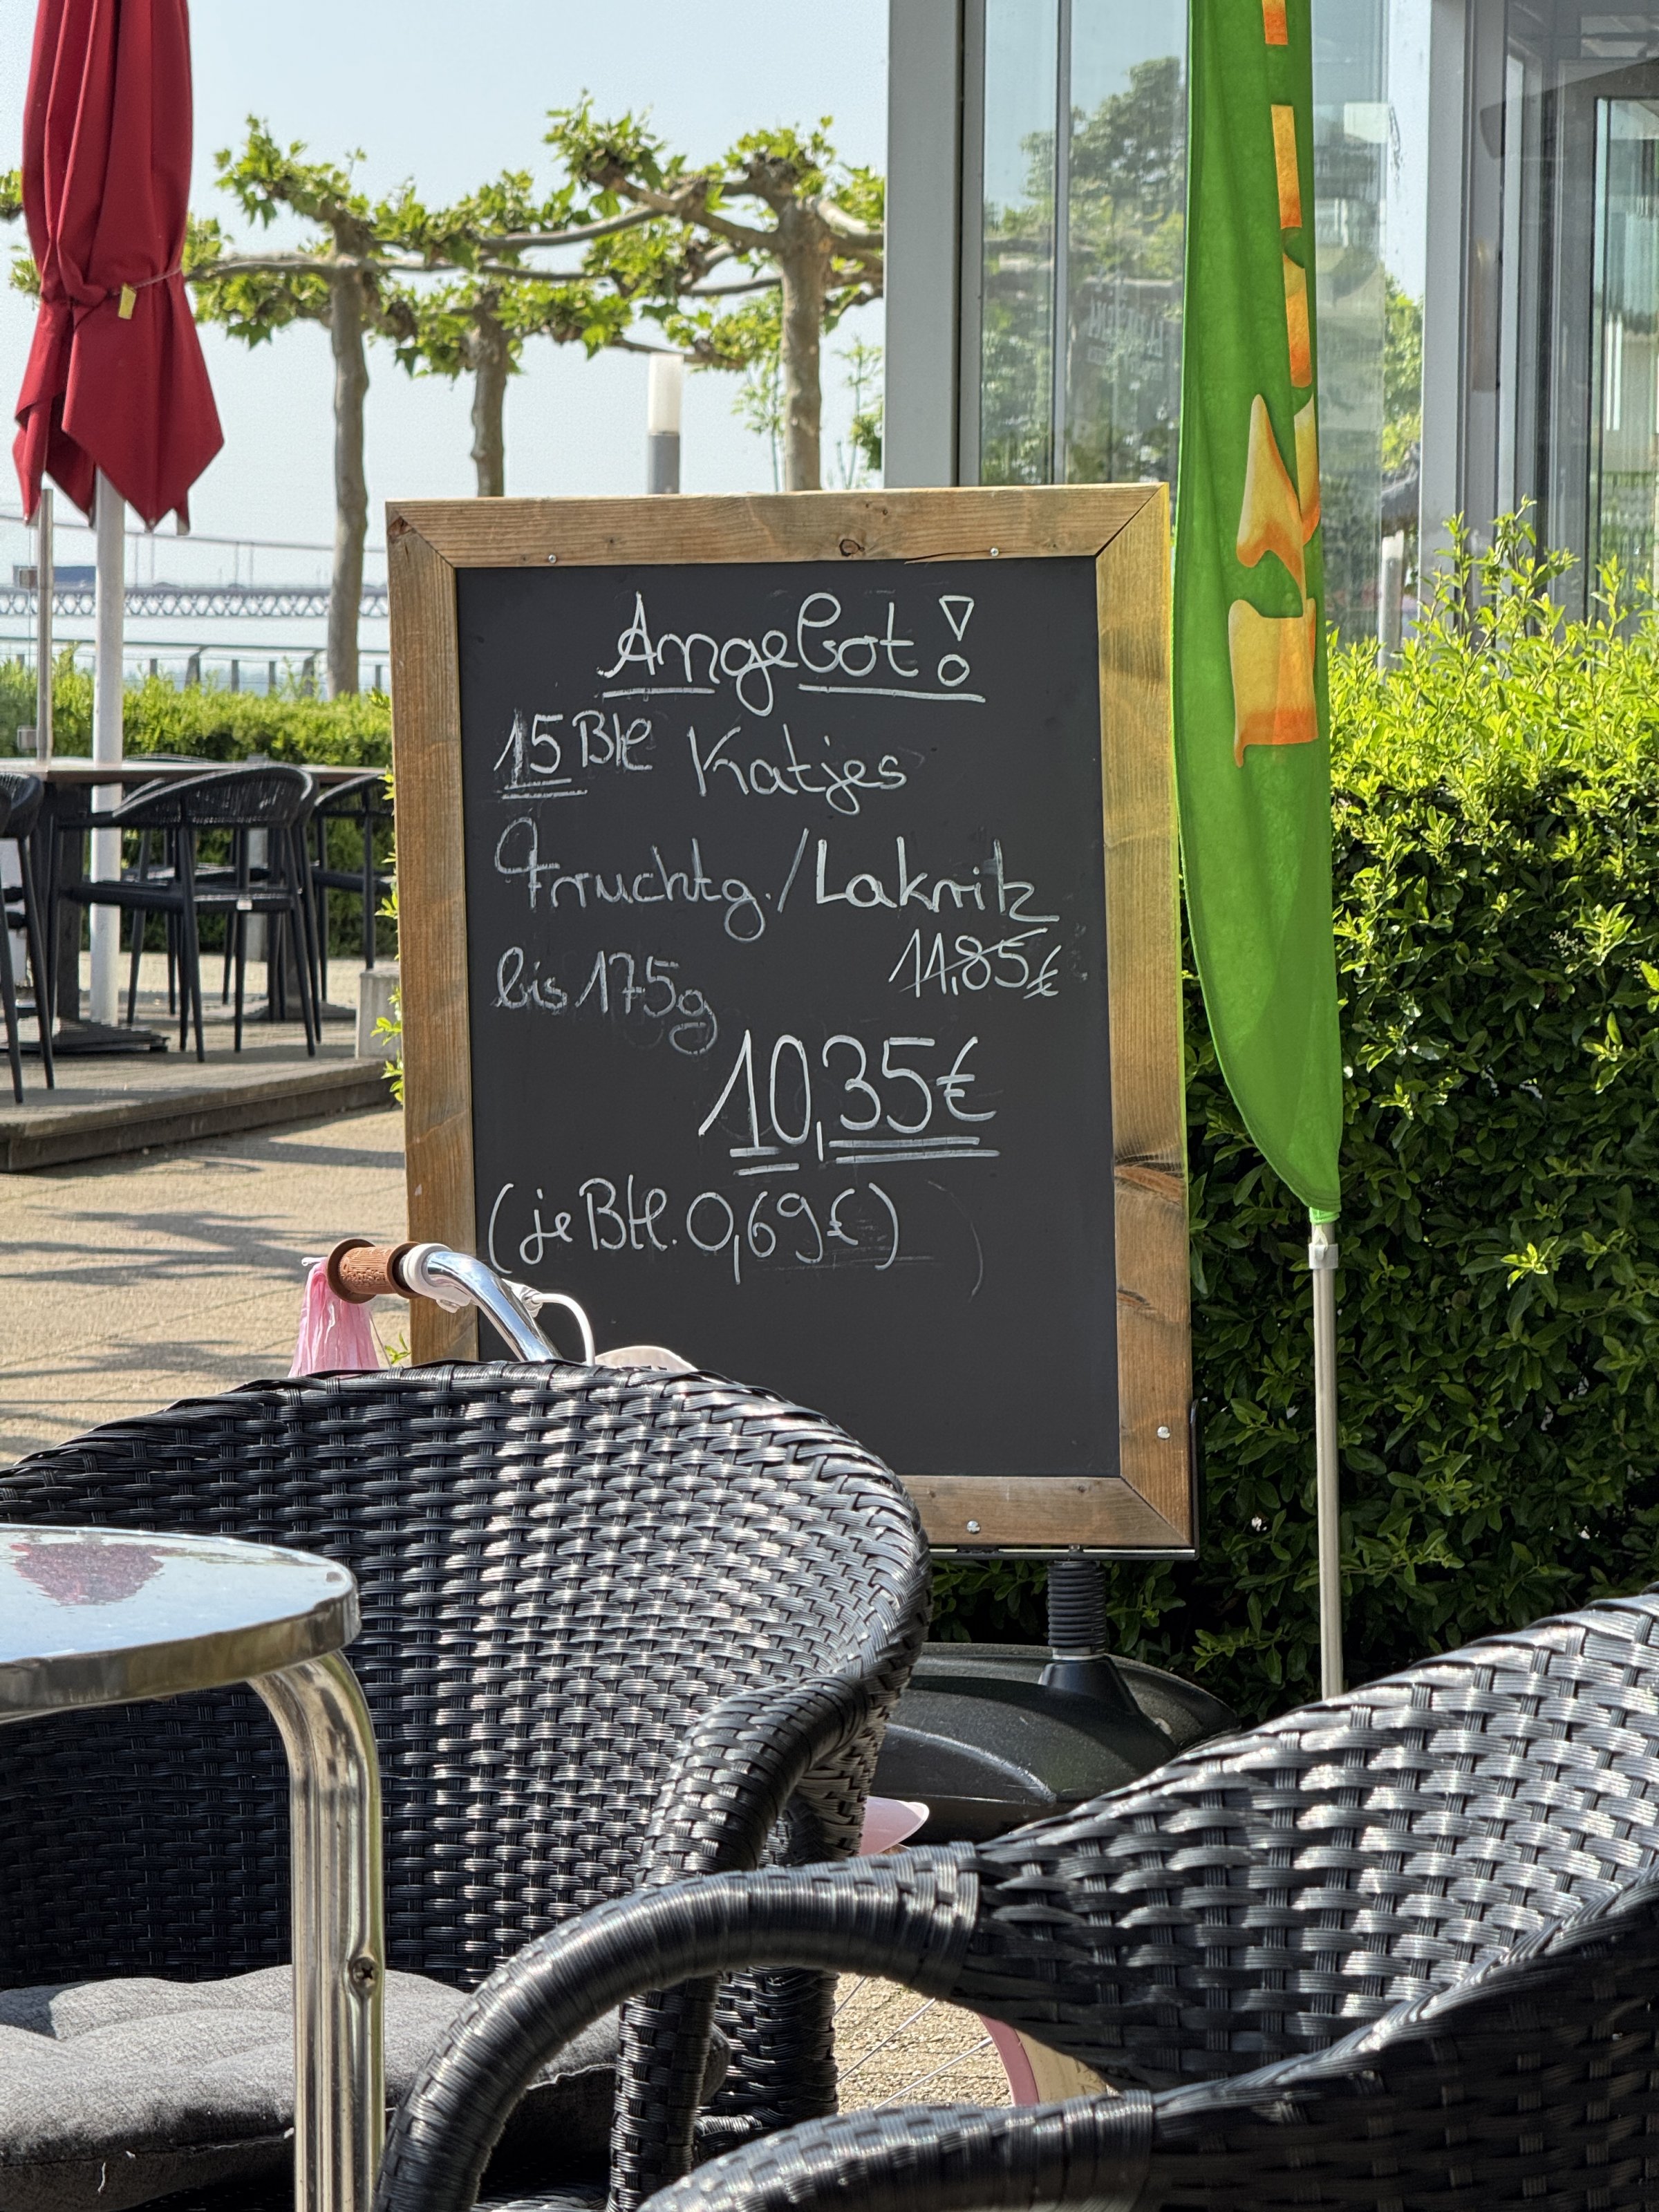 Angebot!
15 Btl Katjes
Fruchtg./Lakritz
bis 175g
11,85€
10,35€
(je Btl. 0,69€)